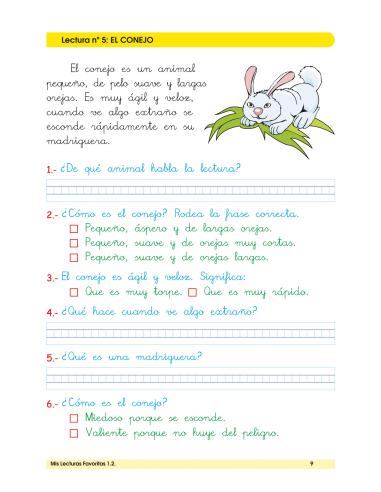 Lectura nº 5: EL CONEJO
El conejo es un animal
pequeño, de pelo suave y largas
orejas. Es muy ágil y veloz,
cuando ve algo extraño se
esconde rápidamente en su
madriguera.
1.- ¿De qué animal habla la lectura?
2.- ¿Cómo es el conejo? Rodea la frase correcta.
Pequeño, áspero y de largas orejas.
Pequeño, suave y de orejas muy cortas.
Pequeño, suave y de orejas largas.
3.- El conejo es ágil y veloz. Significa:
Que es muy torpe. Que es muy rápido.
4.- ¿Qué hace cuando ve algo extraño?
5.- ¿Qué es una madriguera?
6.- ¿Cómo es el conejo?
Miedoso porque se esconde.
Valiente porque no huye del peligro.
Mis Lecturas Favoritas 1.2. 9